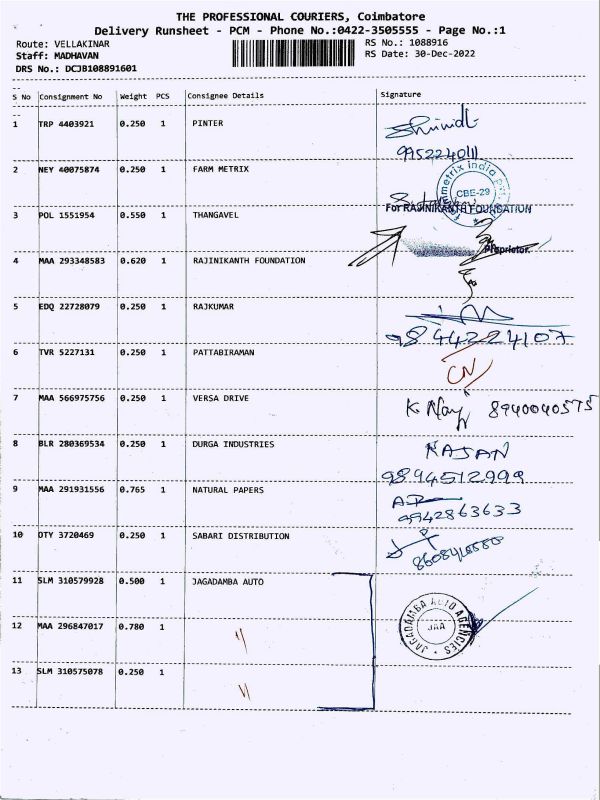 THE PROFESSIONAL COURIERS, Coimbatore
Delivery Runsheet - PCM - Phone No.:0422-3505555 - Page No.:1
Route: VELLAKINAR RS No.: 1088916
Staff: MADHAVAN RS Date: 30-Dec-2022
DRS No.: DCJB108891601
S No Consignment No Weight PCS Consignee Details Signature
1 TRP 4403921 0.250 1 PINTER
2 NEY 40075874 0.250 1 FARM METRIX
CBE-29
For RAJNIKANTH FOUNDATION
3 POL 1551954 0.550 1 THANGAVEL
Proprietor.
4 MAA 293348583 0.620 1 RAJINIKANTH FOUNDATION
5 EDQ 22728079 0.250 1 RAJKUMAR
9844224107
6 TVR 5227131 0.250 1 PATTABIRAMAN
CN
7 MAA 566975756 0.250 1 VERSA DRIVE
8940040575
8 BLR 280369534 0.250 1 DURGA INDUSTRIES
RAJAN
9894512999
9 MAA 291931556 0.765 1 NATURAL PAPERS
9942863633
10 OTY 3720469 0.250 1 SABARI DISTRIBUTION
11 SLM 310579928 0.500 1 JAGADAMBA AUTO
JAGADAMBA AUTO AGENCIES
JAA
12 MAA 296847017 0.780 1 "
13 SLM 310575078 0.250 1 "